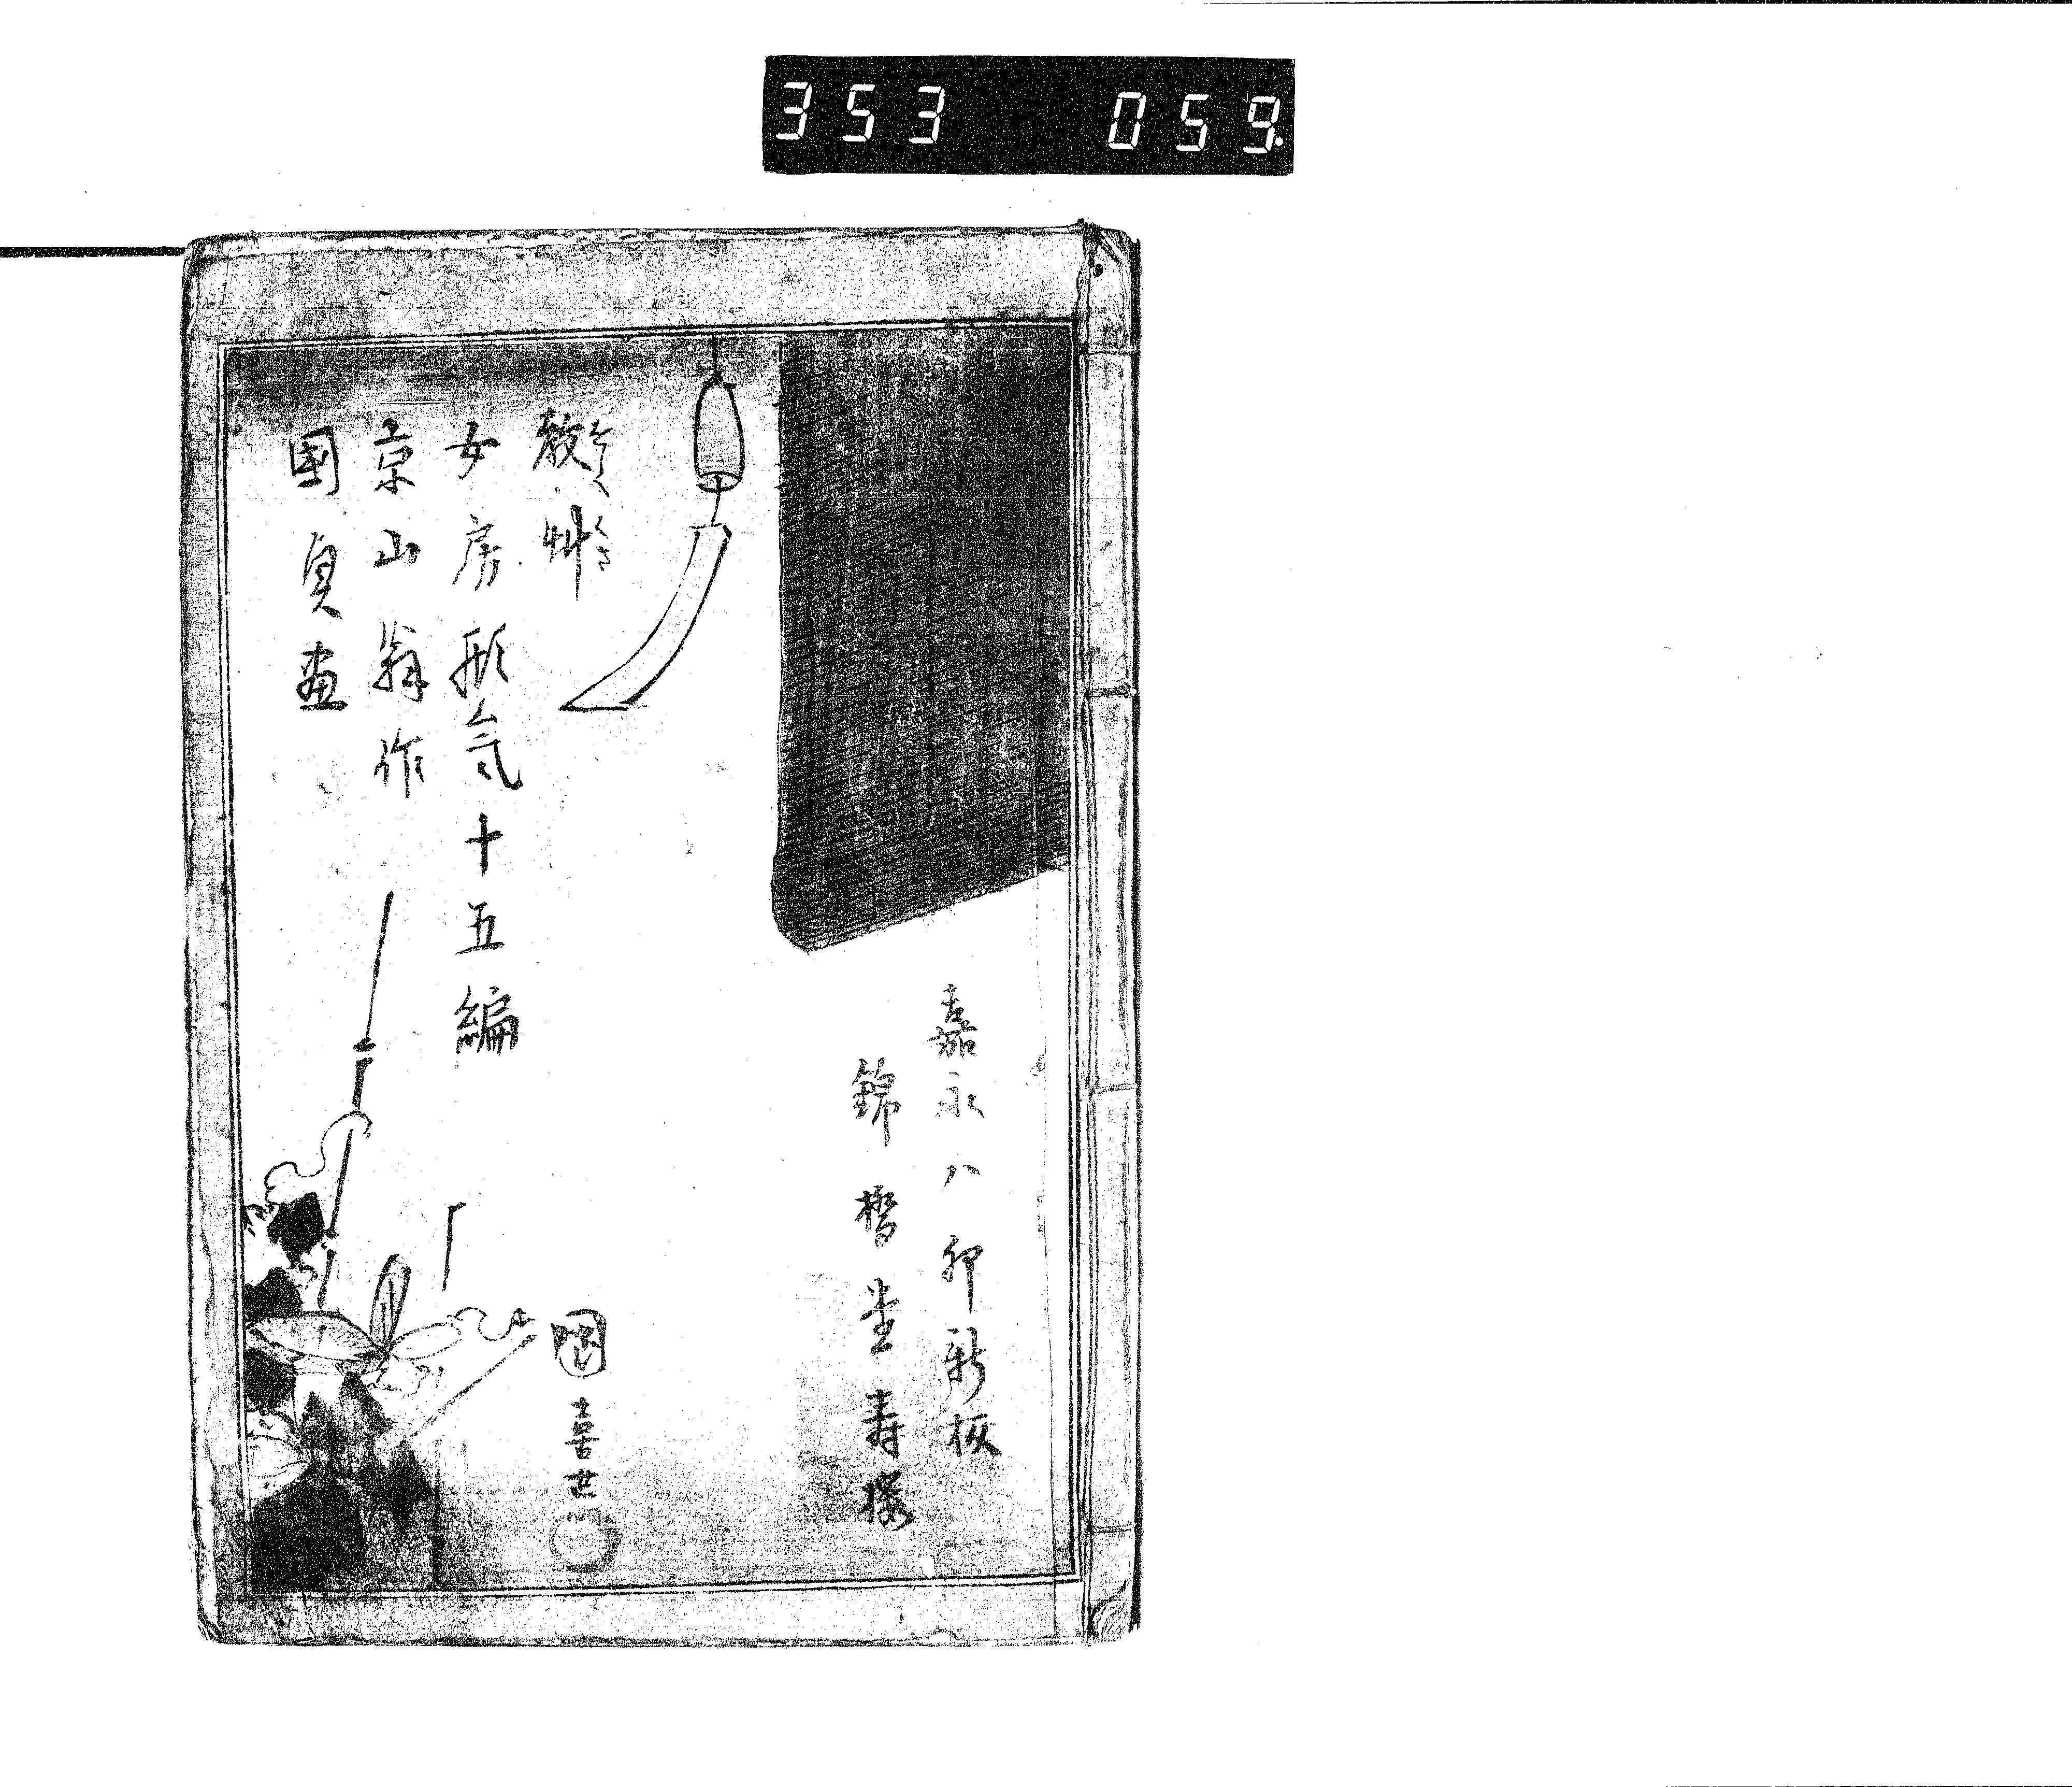 353 059
嘉永八卯新板
錦橋堂壽梓
教艸
くさ
女房形気十五編
京山翁作
國貞画
喜世